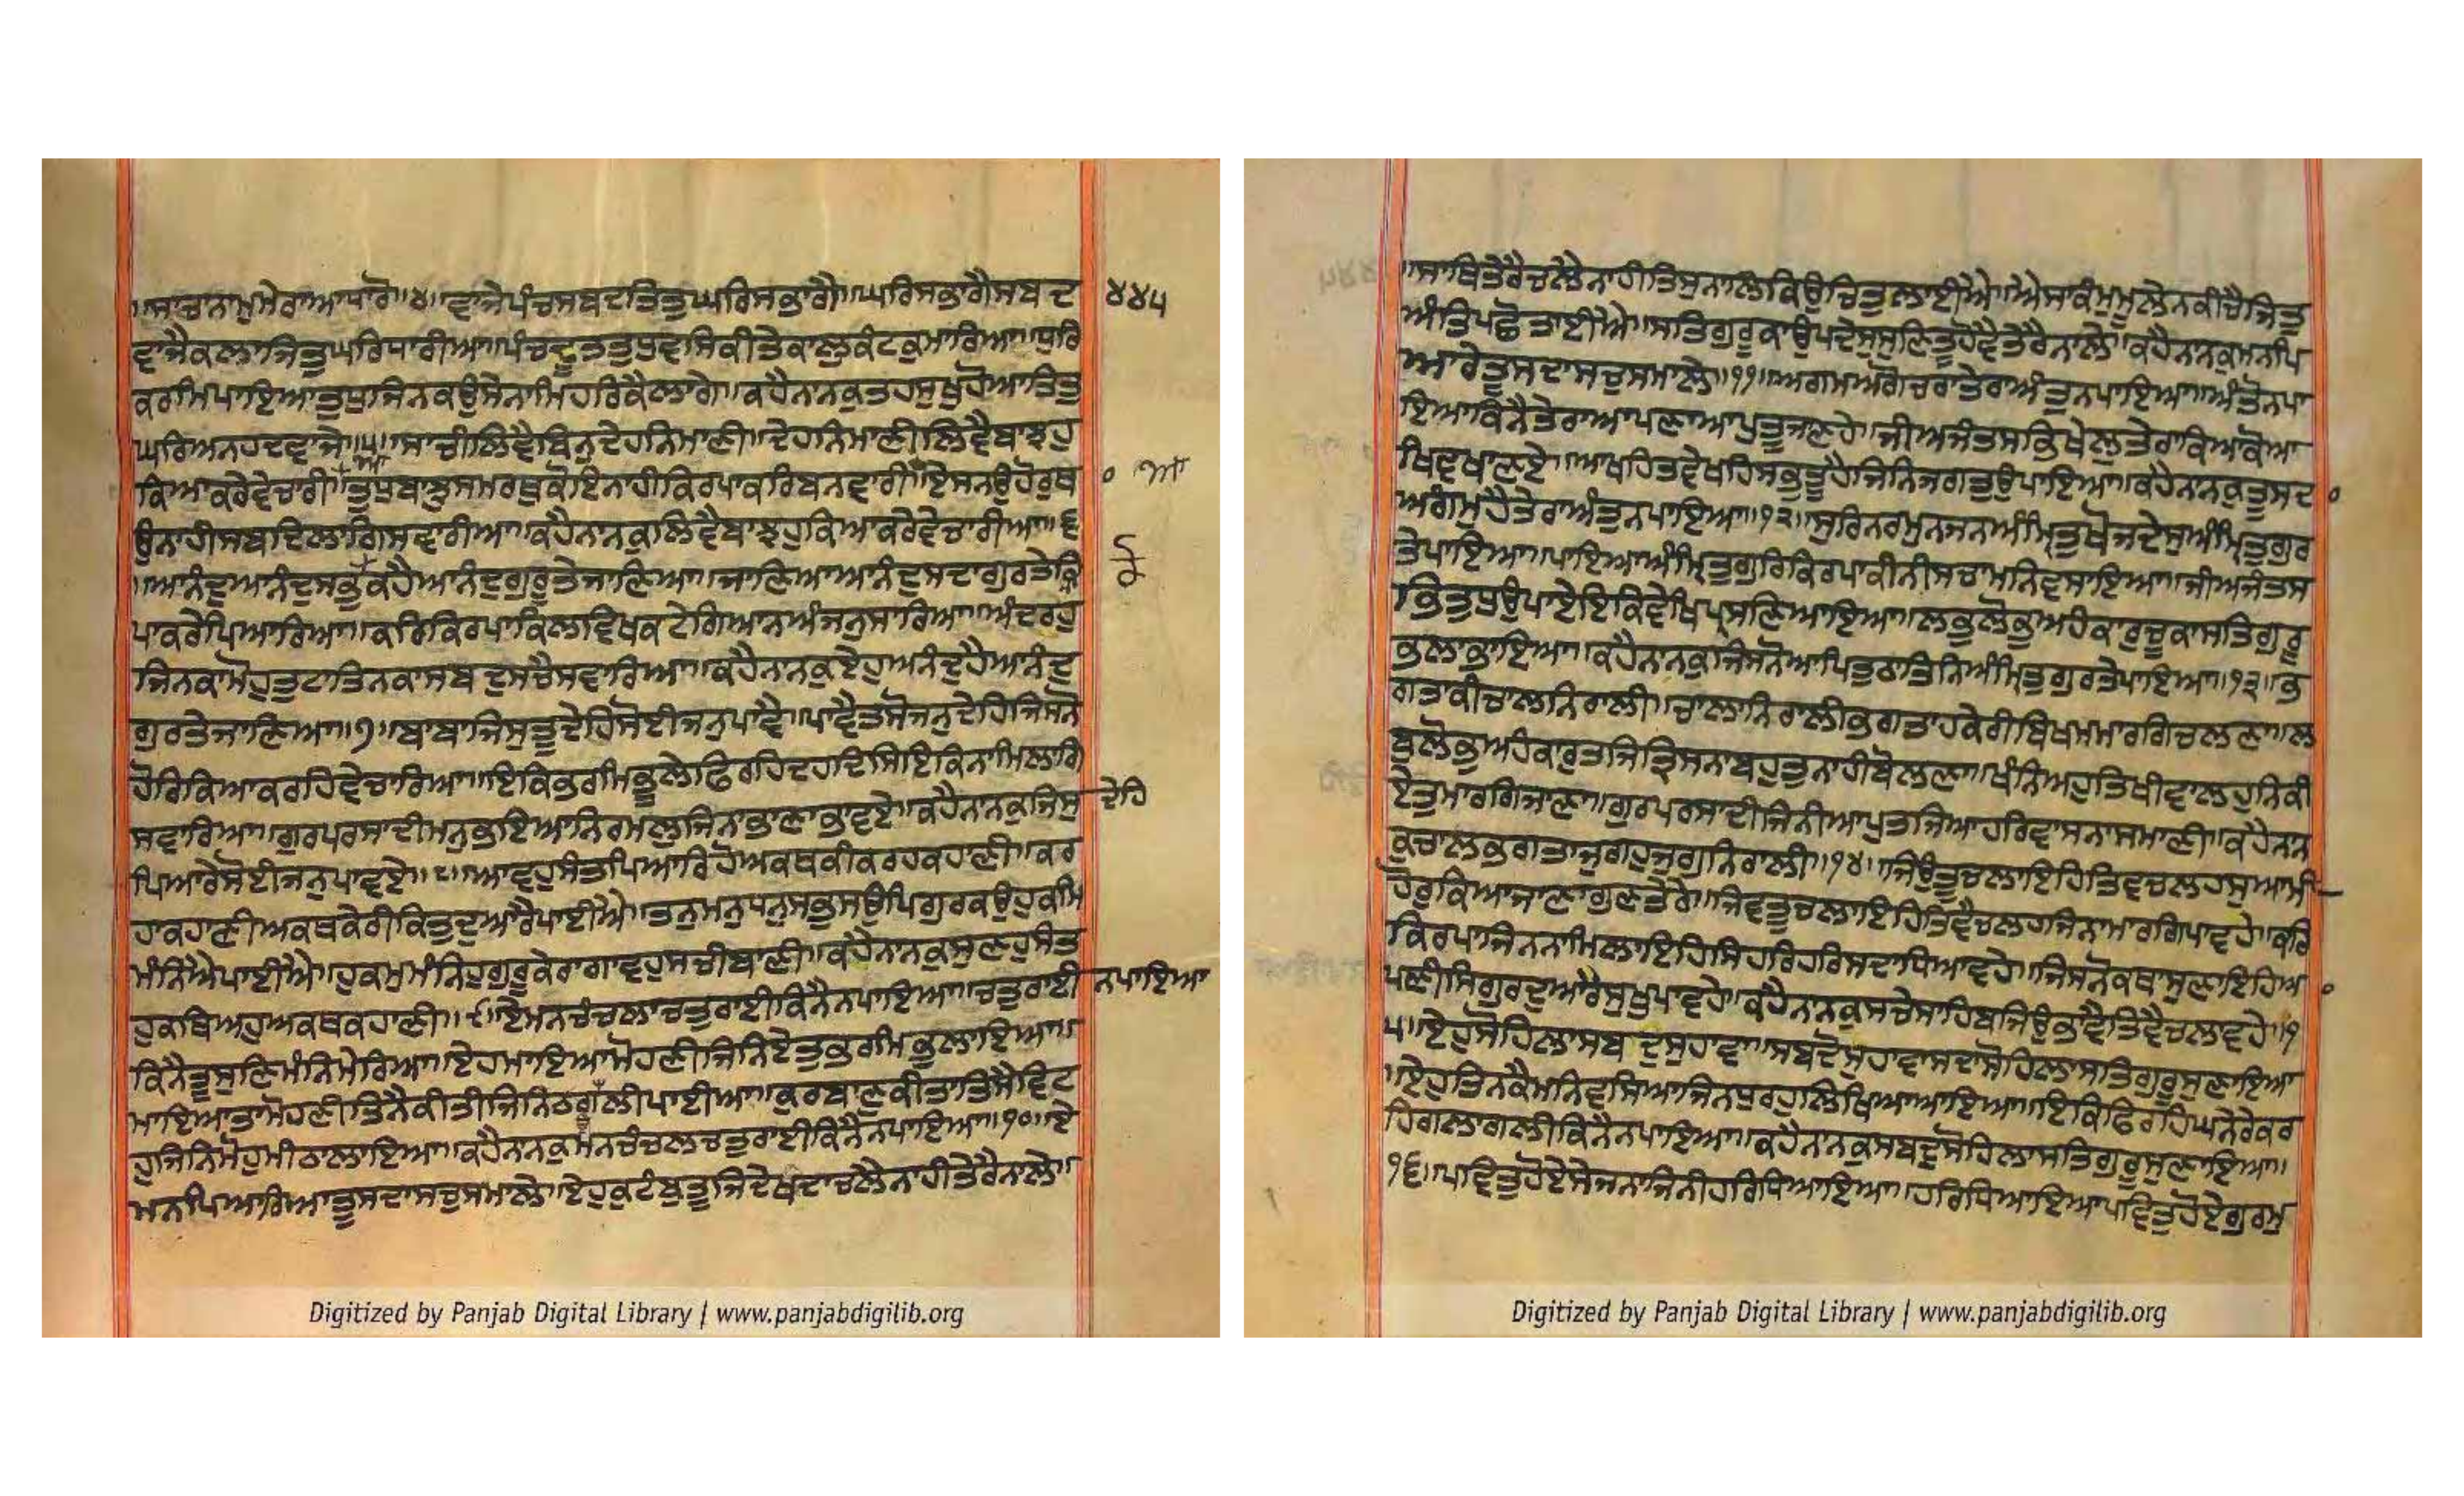 ॥ਸਾਚਨਾਮੁਮੇਰਾਆਧਾਰੋ॥੪॥ਵਾਜੇਪੰਚਸਬਦਤਿਤੁਘਰਿਸਭਾਗੈ॥ਘਰਿਸਭਾਗੈਸਬਦ ੪੪੫
ਵਾਜੈਕਲਾਜਿਤੁਘਰਿਧਾਰੀਆ॥ਪੰਚਦੂਤਤੁਧੁਵਸਿਕੀਤੇਕਾਲੁਕੰਟਕੁਮਾਰਿਆ॥ਧੁਰਿ
ਕਰਮਿਪਾਇਆਤੁਧੁਜਿਨਕਉਸੇਨਾਮਿਹਰਿਕੈਲਾਗੇ॥ਕਹੈਨਾਨਕੁਤਹਸੁਖੁਹੋਆਤਿਤੁ
ਘਰਿਅਨਹਦਵਾਜੇ॥੫॥ਸਾਚੀਲਿਵੈਬਿਨੁਦੇਹਨਿਮਾਣੀ॥ਦੇਹਨਿਮਾਣੀਲਿਵੈਬਾਝਹੁ
ਕਿਆਕਰੇਵੇਚਾਰੀ॥ਤੁਧੁਬਾਝੁਸਮਰਥੁਕੋਇਨਾਹੀਕਿਰਪਾਕਰਿਬਨਵਾਰੀ॥ਇਸਨਉਹੋਰੁਥ
ਉਨਾਹੀਸਬਦਿਲਾਗਿਸਵਾਰੀਆ॥ਕਹੈਨਾਨਕੁਲਿਵੈਬਾਝਹੁਕਿਆਕਰੇਵੇਚਾਰੀਆ॥੬
॥ਆਨੰਦੁਆਨੰਦੁਸਭੁਕੋਕਹੈਆਨੰਦੁਗੁਰੂਤੇਜਾਣਿਆ॥ਜਾਣਿਆਆਨੰਦੁਸਦਾਗੁਰਤੇਕ੍ਰਿ
ਪਾਕਰੇਪਿਆਰਿਆ॥ਕਰਿਕਿਰਪਾਕਿਲਵਿਖਕਟੇਗਿਆਨਅੰਜਨੁਸਾਰਿਆ॥ਅੰਦਰਹੁ
ਜਿਨਕਾਮੋਹੁਤੁਟਾਤਿਨਕਾਸਬਦੁਸਚੈਸਵਾਰਿਆ॥ਕਹੈਨਾਨਕੁਏਹੁਅਨੰਦੁਹੈਆਨੰਦੁ
ਗੁਰਤੇਜਾਣਿਆ॥੭॥ਬਾਬਾਜਿਸੁਤੂਦੇਹਿਸੋਈਜਨੁਪਾਵੈ॥ਪਾਵੈਤਸੋਜਨੁਦੇਹਿਜਿਸਨੋ
ਹੋਰਿਕਿਆਕਰਹਿਵੇਚਾਰਿਆ॥ਇਕਿਭਰਮਿਭੂਲੇਫਿਰਹਿਦਹਦਿਸਿਇਕਿਨਾਮਿਲਾਗਿ
ਸਵਾਰਿਆ॥ਗੁਰਪਰਸਾਦੀਮਨੁਭਇਆਨਿਰਮਲੁਜਿਨਾਭਾਣਾਭਾਵਏ॥ਕਹੈਨਾਨਕੁਜਿਸੁ ਦੇਹਿ
ਪਿਆਰੇਸੋਈਜਨੁਪਾਵਏ॥੮॥ਆਵਹੁਸੰਤਪਿਆਰਿਹੋਅਕਥਕੀਕਰਹਕਹਾਣੀ॥ਕਰ
ਹਾਕਹਾਣੀਅਕਥਕੇਰੀਕਿਤੁਦੁਆਰੈਪਾਈਐ॥ਤਨੁਮਨੁਧਨੁਸਭੁਸਉਪਿਗੁਰਕਉਹੁਕਮਿ
ਮੰਨਿਐਪਾਈਐ॥ਹੁਕਮੁਮੰਨਿਹੁਗੁਰੂਕੇਰਾਗਾਵਹੁਸਚੀਬਾਣੀ॥ਕਹੈਨਾਨਕੁਸੁਣਹੁਸੰਤ
ਹੁਕਥਿਅਹੁਅਕਥਕਹਾਣੀ॥੯॥ਏਮਨਚੰਚਲਾਚਤੁਰਾਈਕਿਨੈਨਪਾਇਆ॥ਚਤੁਰਾਈ ਨਪਾਇਆ
ਕਿਨੈਤੂਸੁਣਿਮੰਨਿਮੇਰਿਆ॥ਏਹਮਾਇਆਮੋਹਣੀਜਿਨਿਏਤੁਭਰਮਿਭੁਲਾਇਆ॥
ਮਾਇਆਤਾਮੋਹਣੀਤਿਨੈਕੀਤੀਜਿਨਿਠਗਉਲੀਪਾਈਆ॥ਕੁਰਬਾਣੁਕੀਤਾਤਿਸੈਵਿਟ
ਹੁਜਿਨਿਮੋਹੁਮੀਠਾਲਾਇਆ॥ਕਹੈਨਾਨਕੁਮਨਚੰਚਲਚਤੁਰਾਈਕਿਨੈਨਪਾਇਆ॥੧੦॥ਏ
ਮਨਪਿਆਰਿਆਤੂਸਦਾਸਚੁਸਮਾਲੇ॥ਏਹੁਕੁਟੰਬੁਤੂਜਿਦੇਖਦਾਚਲੈਨਾਹੀਤੇਰੈਨਾਲੇ॥
॥ਸਾਥਿਤੇਰੈਚਲੈਨਾਹੀਤਿਸੁਨਾਲਿਕਿਉਚਿਤੁਲਾਈਐ॥ਐਸਾਕੰਮੁਮੂਲੇਨਕੀਚੈਜਿਤੁ
ਅੰਤਿਪਛੋਤਾਈਐ॥ਸਤਿਗੁਰੂਕਾਉਪਦੇਸੁਸੁਣਿਤੂਹੋਵੈਤੇਰੈਨਾਲੇ॥ਕਹੈਨਾਨਕੁਮਨਪਿ
ਆਰੇਤੂਸਦਾਸਚੁਸਮਾਲੇ॥੧੧॥ਅਗਮਅਗੋਚਰਾਤੇਰਾਅੰਤੁਨਪਾਇਆ॥ਅੰਤੋਨਪਾ
ਇਆਕਿਨੈਤੇਰਾਆਪਣਾਆਪੁਤੂਜਾਣਹੇ॥ਜੀਅਜੰਤਸਭਿਖੇਲੁਤੇਰਾਕਿਆਕੋਆ
ਖਿਵਖਾਣਏ॥ਆਖਹਿਤਵੇਖਹਿਸਭੁਤੂਹੈਜਿਨਿਜਗਤੁਉਪਾਇਆ॥ਕਹੈਨਾਨਕੁਤੂਸਦ
ਅਗੰਮੁਹੈਤੇਰਾਅੰਤੁਨਪਾਇਆ॥੧੨॥ਸੁਰਿਨਰਮੁਨਜਨਅੰਮ੍ਰਿਤੁਖੋਜਦੇਸੁਅੰਮ੍ਰਿਤੁਗੁਰ
ਤੇਪਾਇਆ॥ਪਾਇਆਅੰਮ੍ਰਿਤੁਗੁਰਿਕਿਰਪਾਕੀਨੀਸਚਾਮਨਿਵਸਾਇਆ॥ਜੀਅਜੰਤਸ
ਭਿਤੁਧੁਉਪਾਏਇਕਿਵੇਖਿਪਰਸਣਿਆਇਆ॥ਲਬੁਲੋਭੁਅਹੰਕਾਰੁਚੂਕਾਸਤਿਗੁਰੂ
ਭਲਾਭਾਇਆ॥ਕਹੈਨਾਨਕੁਜਿਸਨੋਆਪਿਤੁਠਾਤਿਨਿਅੰਮ੍ਰਿਤੁਗੁਰਤੇਪਾਇਆ॥੧੩॥ਭ
ਗਤਾਕੀਚਾਲਨਿਰਾਲੀ॥ਚਾਲਾਨਿਰਾਲੀਭਗਤਾਹਕੇਰੀਬਿਖਮਮਾਰਗਿਚਲਣਾ॥ਲ
ਬੁਲੋਭੁਅਹੰਕਾਰੁਤਜਿਤ੍ਰਿਸਨਾਬਹੁਤੁਨਾਹੀਬੋਲਣਾ॥ਖੰਨਿਅਹੁਤਿਖੀਵਾਲਹੁਨਿਕੀ
ਏਤੁਮਾਰਗਿਜਾਣਾ॥ਗੁਰਪਰਸਾਦੀਜਿਨੀਆਪੁਤਜਿਆਹਰਿਵਾਸਨਾਸਮਾਣੀ॥ਕਹੈਨਾਨ
ਕੁਚਾਲਭਗਤਾਜੁਗਹੁਜੁਗੁਨਿਰਾਲੀ॥੧੪॥ਜਿਉਤੂਚਲਾਇਹਿਤਿਵਚਲਹਸੁਆਮੀ
ਹੋਰੁਕਿਆਜਾਣਾਗੁਣਤੇਰੇ॥ਜਿਵਤੂਚਲਾਇਹਿਤਿਵੈਚਲਹਜਿਨਾਮਾਰਗਿਪਾਵਹੇ॥ਕਰਿ
ਕਿਰਪਾਜਿਨਨਾਮਿਲਾਇਹਿਸਿਹਰਿਹਰਿਸਦਾਧਿਆਵਹੇ॥ਜਿਸਨੋਕਥਾਸੁਣਾਇਹਿਅ
ਪਣੀਸਿਗੁਰਦੁਆਰੈਸੁਖੁਪਾਵਹੇ॥ਕਹੈਨਾਨਕੁਸਚੇਸਾਹਿਬਜਿਉਭਾਵੈਤਿਵੈਚਲਾਵਹੇ॥੧
੫॥ਏਹੁਸੋਹਿਲਾਸਬਦੁਸੁਹਾਵਾ॥ਸਬਦੋਸੁਹਾਵਾਸਦਾਸੋਹਿਲਾਸਤਿਗੁਰੂਸੁਣਾਇਆ
॥ਏਹੁਤਿਨਕੈਮਨਿਵਸਿਆਜਿਨਧੁਰਹੁਲਿਖਿਆਆਇਆ॥ਇਕਿਫਿਰਹਿਘਨੇਰੇਕਰ
ਹਿਗਲਾਗਲੀਕਿਨੈਨਪਾਇਆ॥ਕਹੈਨਾਨਕੁਸਬਦੁਸੋਹਿਲਾਸਤਿਗੁਰੂਸੁਣਾਇਆ॥
੧੬॥ਪਵਿਤੁਹੋਏਸੇਜਨਾਜਿਨੀਹਰਿਧਿਆਇਆ॥ਹਰਿਧਿਆਇਆਪਵਿਤੁਹੋਏਗੁਰਮੁ
Digitized by Panjab Digital Library | www.panjabdigilib.org
Digitized by Panjab Digital Library | www.panjabdigilib.org